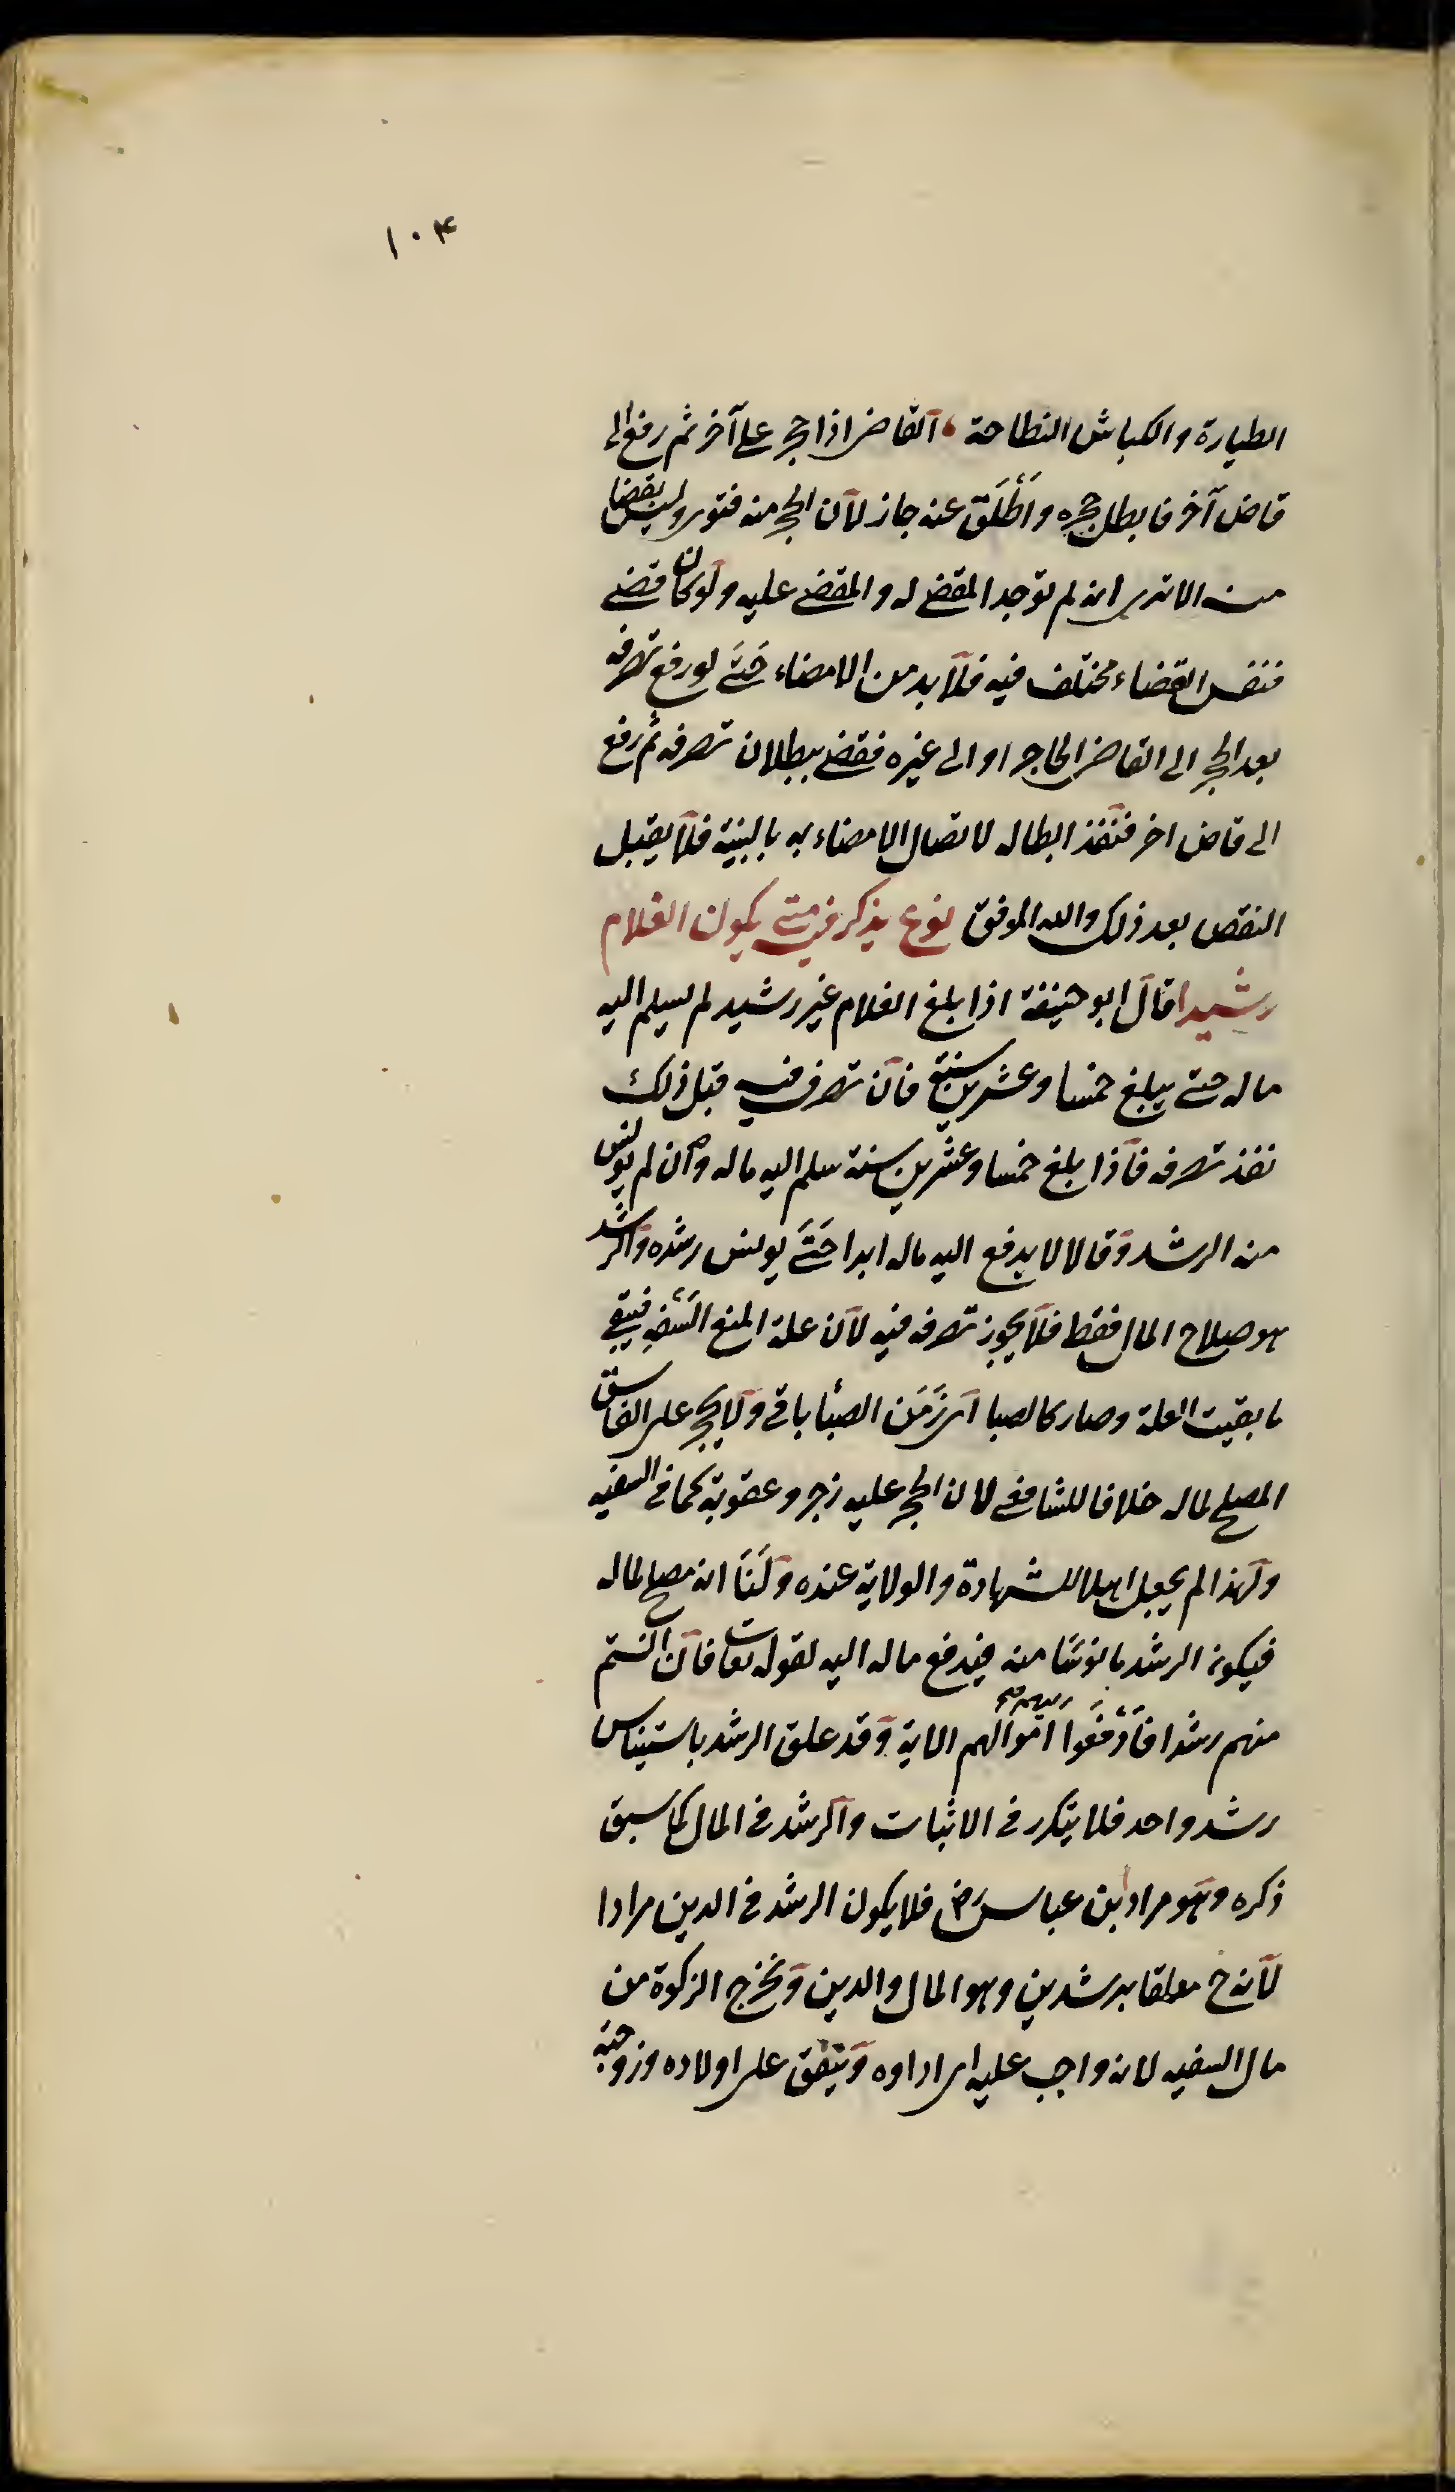 ١٠٤
الطيارة والكباش النطاحة القاضى اذا حجر على آخر ثم رفع الى
قاض آخر فابطل حجره واَطْلَقَ عنه جاز لان الحجر منه فتوى وليس بقضاء
منه الا ترى انه لم توجد المقضى له والمقضى عليه ولو كان قضى
فنفس القضاء مختلف فيه فلا بد من الامضاء حَتَى لو رفع تصرفه
بعد الحجر الى القاضى الحاجر او الى غيره فقضى ببطلان تصرفه ثم رفع
الى قاض اخر فنَفّذ ابطاله لاتصال الامضاء به بالبنية فلا يقبل
النقض بعد ذلك والله الموفق نوع يذكر فيه متى يكون الغلام
رشيدا قال ابو حنيفة اذا بلغ الغلام غير رشيد لم يسلم اليه
ماله حتى يبلغ خمسا وعشرين سنة فان تصرف فيه قبل ذلك
نفذ تصرفه فاذا بلغ خمسا وعشرين سنة سلم اليه ماله وان لم يونس
منه الرشد وقالا لا يدفع اليه ماله ابدا حَتَى يونس رشده والرشد
هو صلاح المال فقط فلا يجوز تصرفه فيه لان علة المنع السَّفَه فيبقى
ما بقيت العلة وصار كالصبا اى زَمَن الصبا باقى ولا يحجر على الفاسق
المصلح لماله خلافا للشافعى لان الحجر عليه زجر وعقوبة كما فى السفيه
ولهذا لم يجعل اهلا للشهادة والولاية عنده ولَنَا انه مصلح لماله
فيكون الرشد مانوسًا منه فيدفع ماله اليه لقوله تعا فان آنستم
منهم رشدا فَادْفَعُوا اليهم صح امْوالهم الاية وقد علق الرشد باستيناس
رشد واحد فلا يتكرر فى الاثبات والرشد فى المال كما سبق
ذكره وهو مراد ابن عباس رَضى فلا يكون الرشد فى الدين مرادا
لانه ح معلقا برشدين وهو المال والدين وتخرج الزكوة من
مال السفيه لانه واجب عليه اى اداوه وينفق على اولاده وزوجته